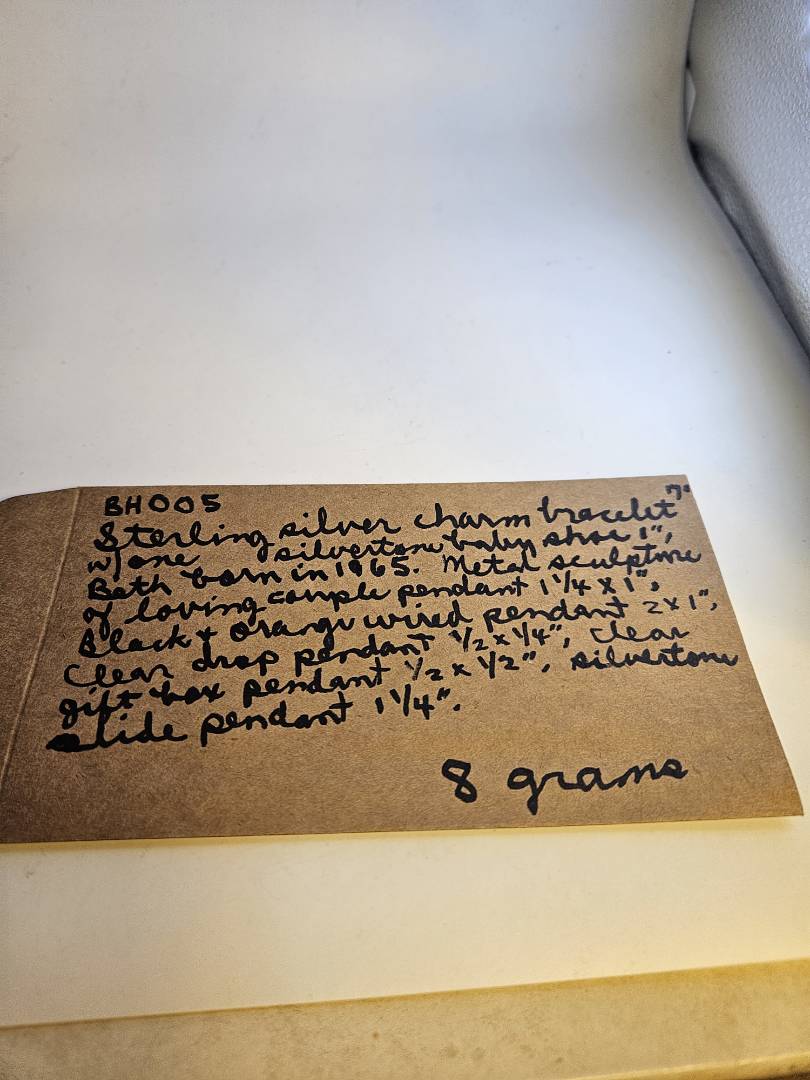 BH005
Sterling silver charm bracelet 7"
w/one silvertone baby shoe 1",
Beth born in 1965. Metal sculpture
of loving couple pendant 1 1/4 x 1",
Black & orange wired pendant 2 x 1",
Clear drop pendant 1/2 x 1/4", clear
gift box pendant 1/2 x 1/2", silvertone
slide pendant 1 1/4".
8 grams